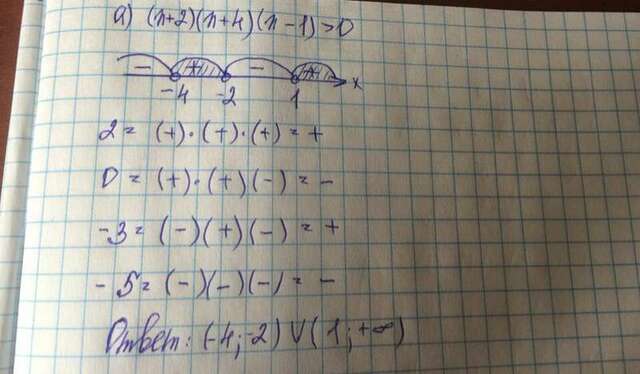 а) (x+2)(x+4)(x-1)>0
- + - + x
-4 -2 1
2 = (+)·(+)·(+) = +
0 = (+)·(+)(-) = -
-3 = (-)(+)(-) = +
-5 = (-)(-)(-) = -
Ответ: (-4;-2) V (1;+∞)